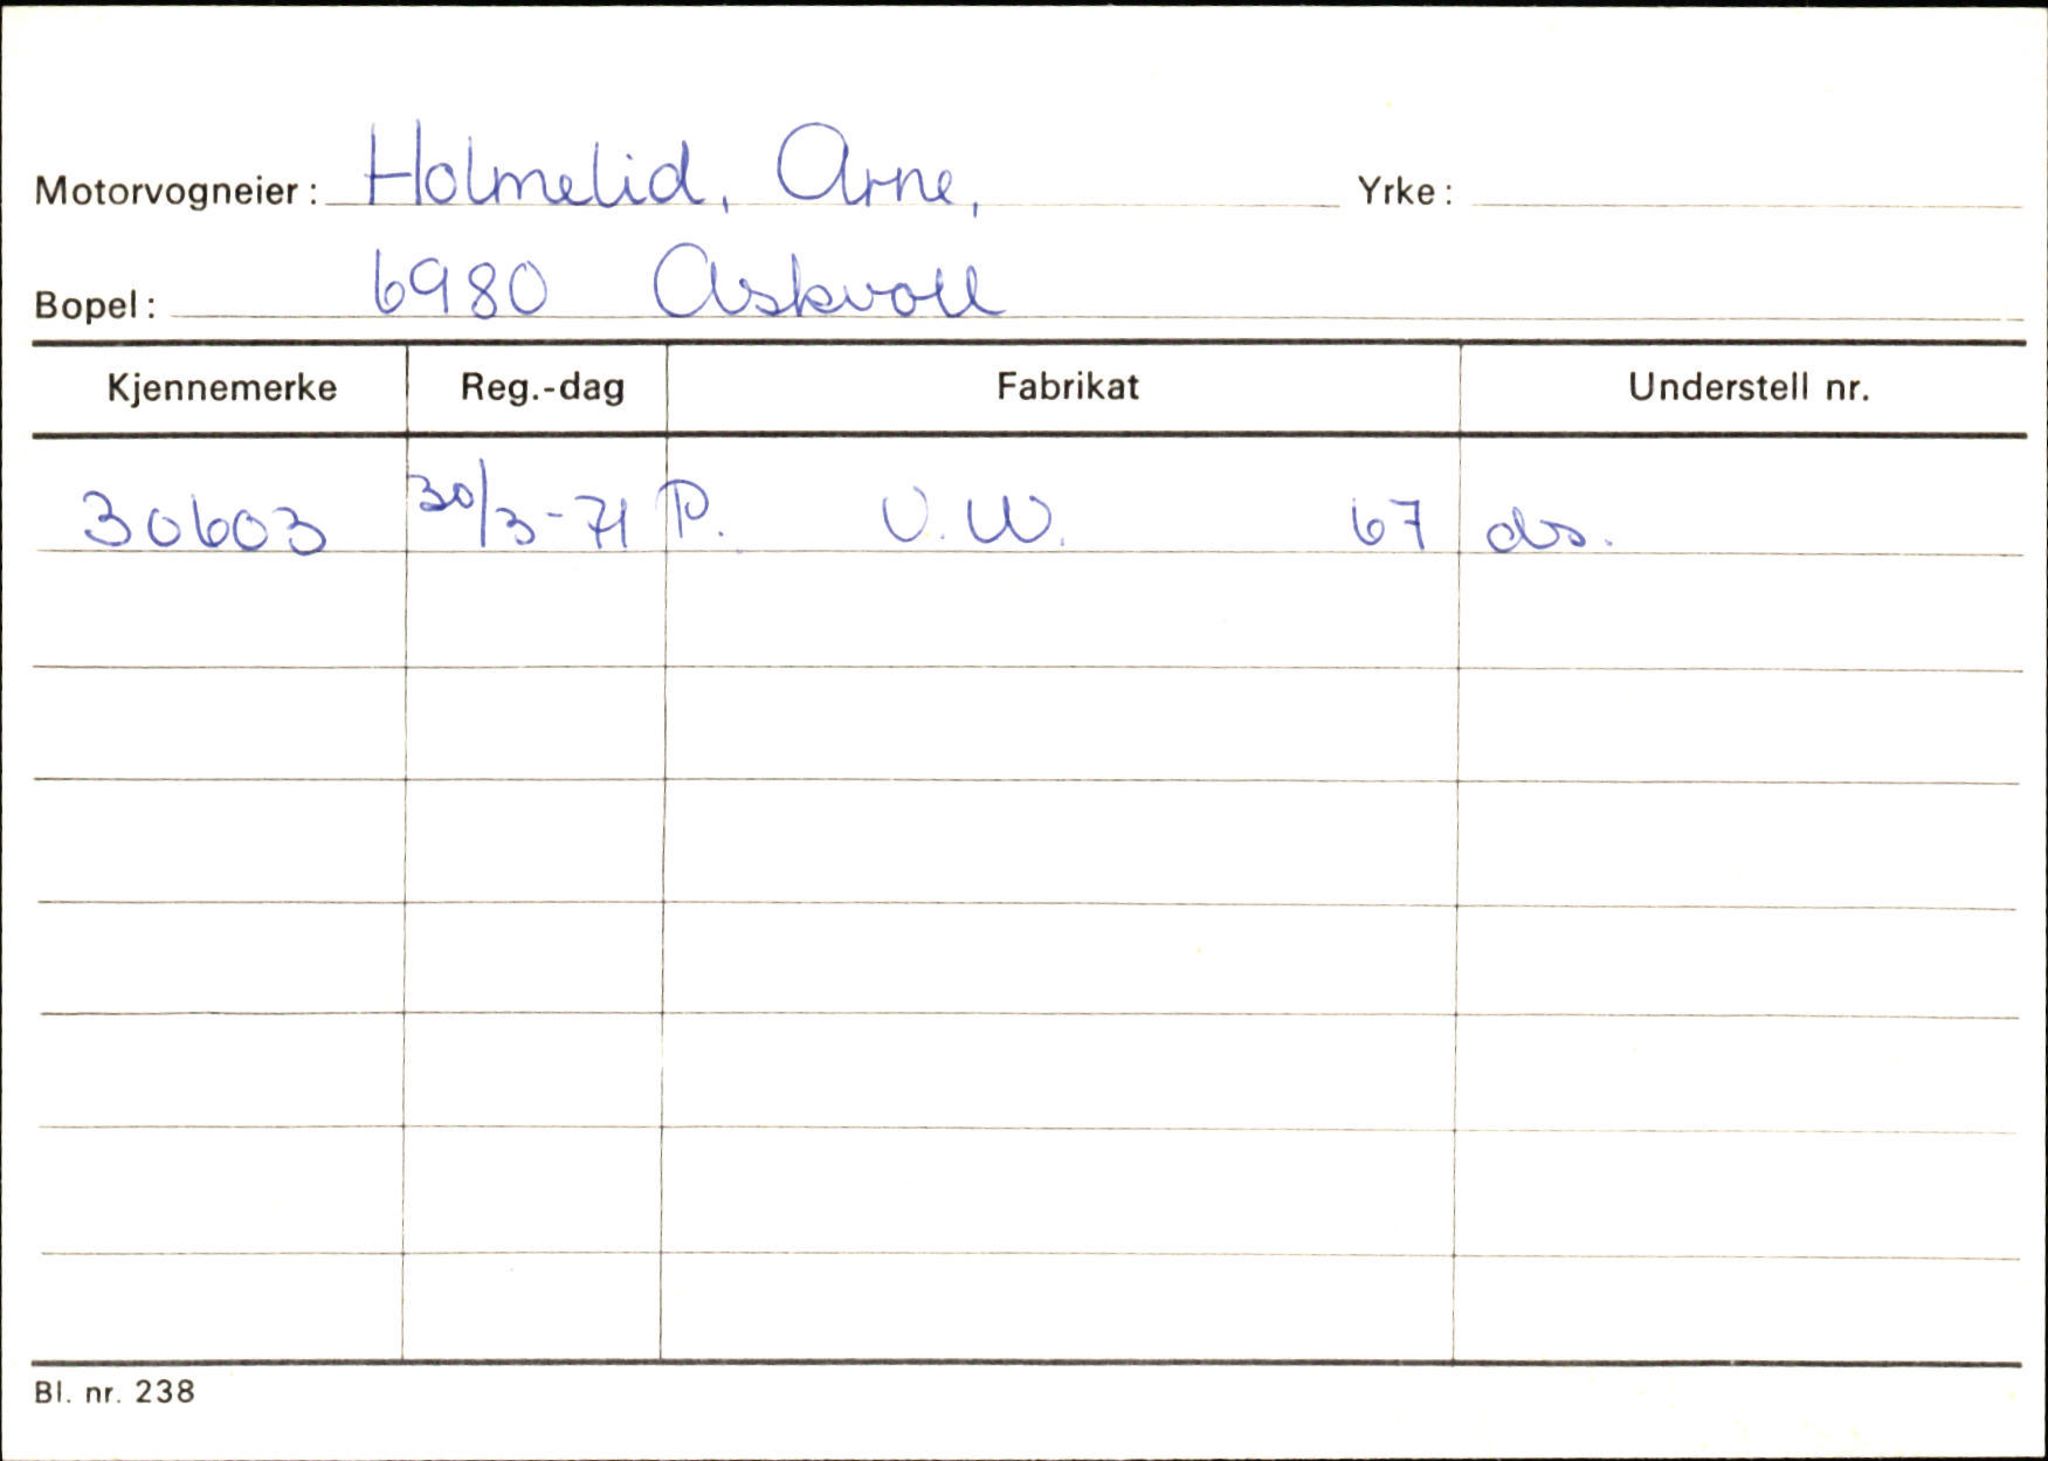 Motorvogneier: Holmelid, Arne, Yrke:
Bopel: 6980 Askvoll
Kjennemerke Reg.-dag Fabrikat Understell nr.
30603 30/3-71 P. V.W. 67 ds.
Bl. nr. 238